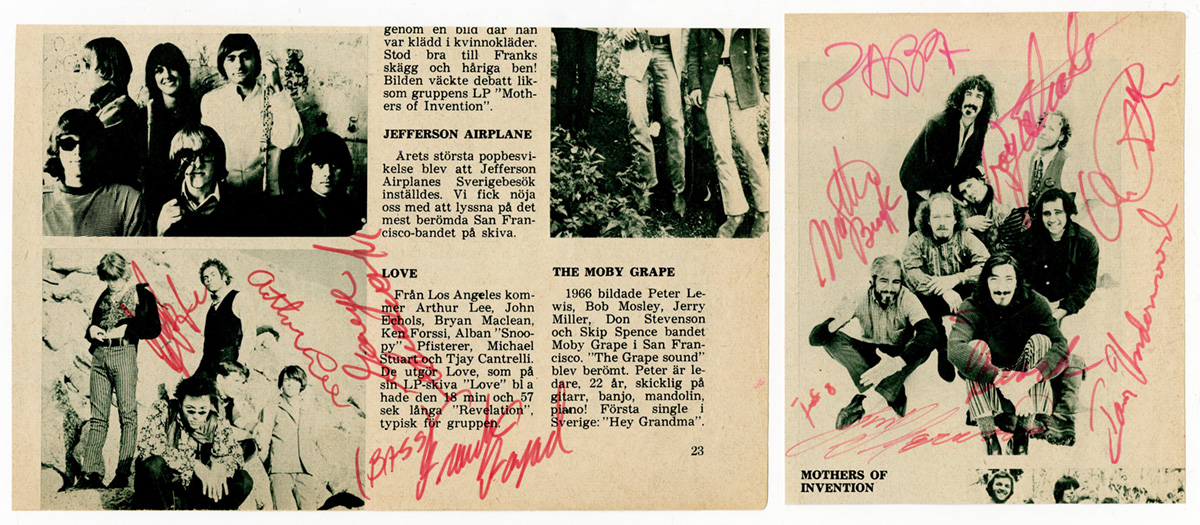 genom en bild där han
var klädd i kvinnokläder.
Stod bra till Franks
skägg och håriga ben!
Bilden väckte debatt lik-
som gruppens LP "Moth-
ers of Invention".
JEFFERSON AIRPLANE
Årets största popbesvi-
kelse blev att Jefferson
Airplanes Sverigebesök
inställdes. Vi fick nöja
oss med att lyssna på det
mest berömda San Fran-
cisco-bandet på skiva.
LOVE
Från Los Angeles kom-
mer Arthur Lee, John
Echols, Bryan Maclean,
Ken Forssi, Alban "Snoo-
py" Pfisterer, Michael
Stuart och Tjay Cantrelli.
De utgör Love, som på
sin LP-skiva "Love" bl a
hade den 18 min och 57
sek långa "Revelation",
typisk för gruppen.
THE MOBY GRAPE
1966 bildade Peter Le-
wis, Bob Mosley, Jerry
Miller, Don Stevenson
och Skip Spence bandet
Moby Grape i San Fran-
cisco. "The Grape sound"
blev berömt. Peter är le-
dare, 22 år, skicklig på
gitarr, banjo, mandolin,
piano! Första single i
Sverige: "Hey Grandma".
23
Arthur Lee
(BASS)
Frank
Fayad
ZAPPA
Ian Underwood
MOTHERS OF
INVENTION